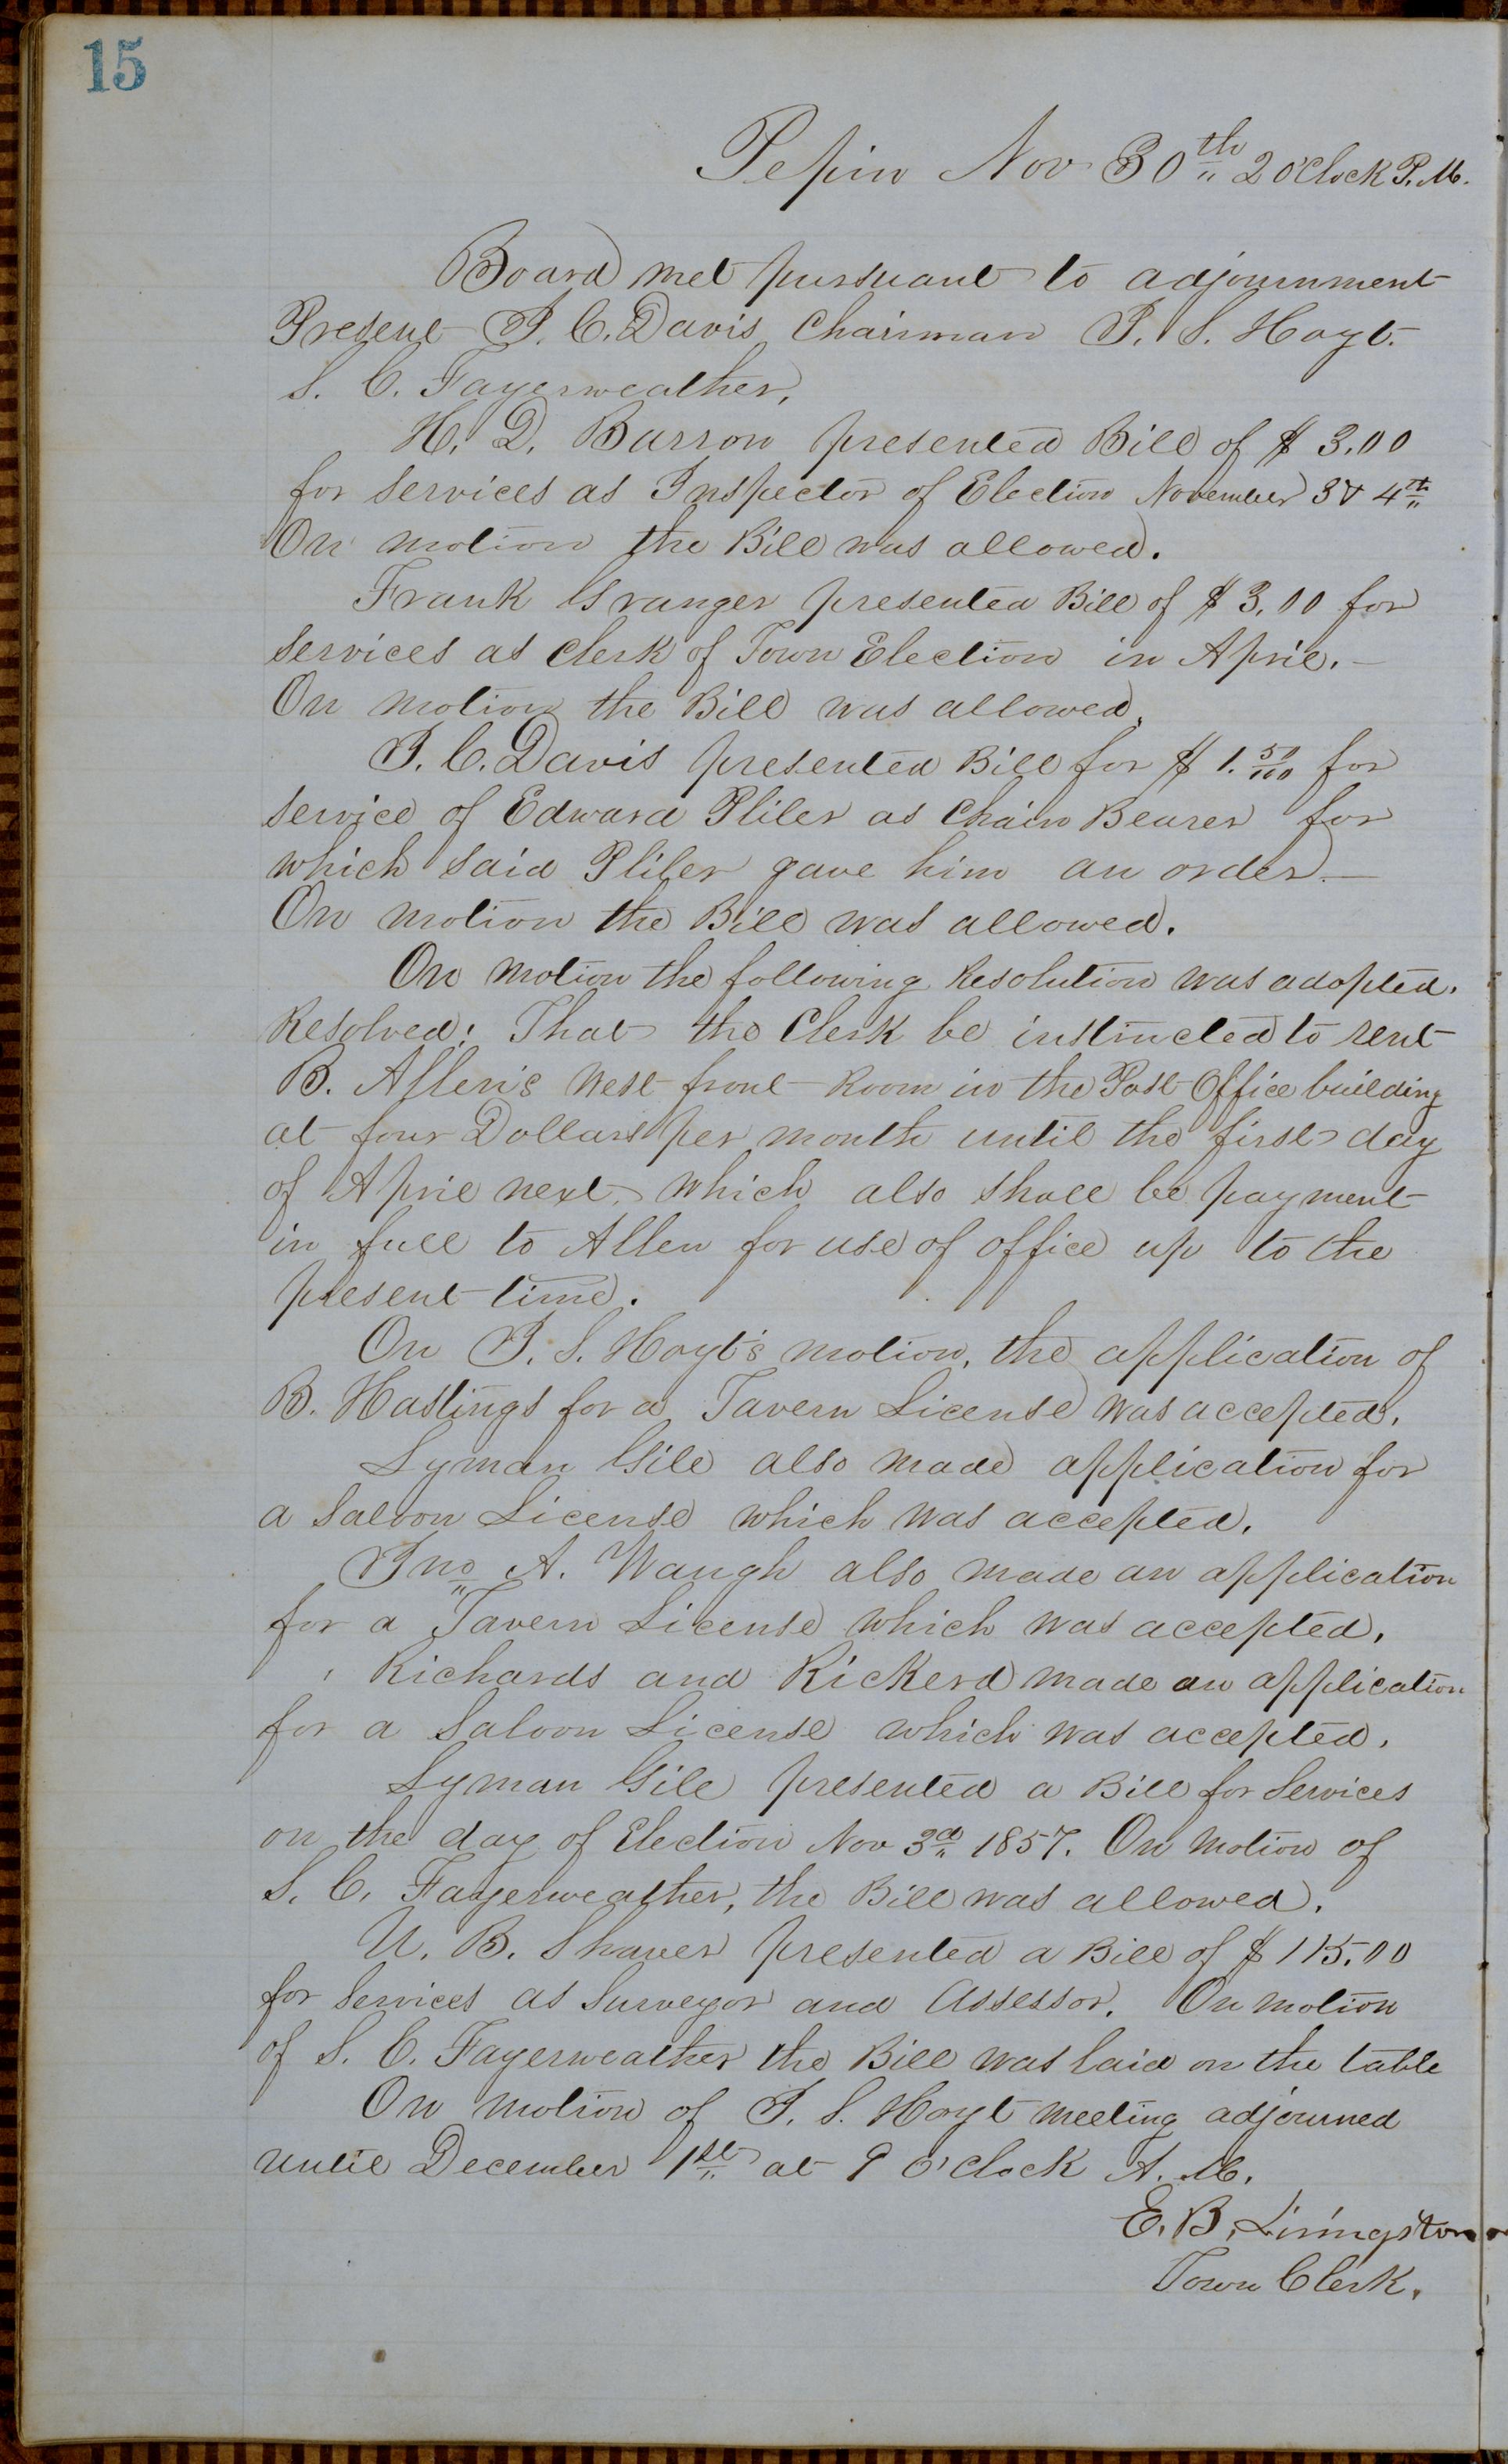 15
Pepin Nov 30th 2 O'Clock P.M.
Board met pursuant to adjournment
Present J. C. Davis Chairman J. S. Hoyt.
S. C. Fayerweather,
H. D. Barron presented Bill of $ 3.00
for services as Inspector of Election November 3 & 4th
On motion the Bill was allowed.
Frank Granger presented Bill of $ 3.00 for
services as Clerk of Town Election in April. —
On motion the Bill was allowed.
J. C. Davis presented Bill for $ 1. 50/100 for
service of Edward Pliler as Chain Bearer for
which said Pliler gave him an order —
On motion the Bill was allowed.
On motion the following Resolution was adopted.
Resolved: That the Clerk be instructed to rent
B. Allen's West front Room in the Post Office building
at four Dollars per month until the first day
of April next, which also shall be payment
in full to Allen for use of office up to the
present time.
On J. S. Hoyt's motion, the application of
B. Hastings for a Tavern License was accepted.
Lyman Gile also made application for
a Saloon License which was accepted.
Jno A. Waugh also made an application
for a Tavern License which was accepted.
Richards and Rickerd made an application
for a Saloon License which was accepted.
Lyman Gile presented a Bill for Services
on the day of Election Nov 3d 1857. On motion of
S. C. Fayerweather, the Bill was allowed.
U. B. Shaver presented a Bill of $ 115.00
for Services as Surveyor and Assessor. On motion
of S. C. Fayerweather the Bill was laid on the table
On motion of J. S. Hoyt meeting adjourned
until December 1st at 9 O'Clock A. M.
E. B. Livingston
Town Clerk.